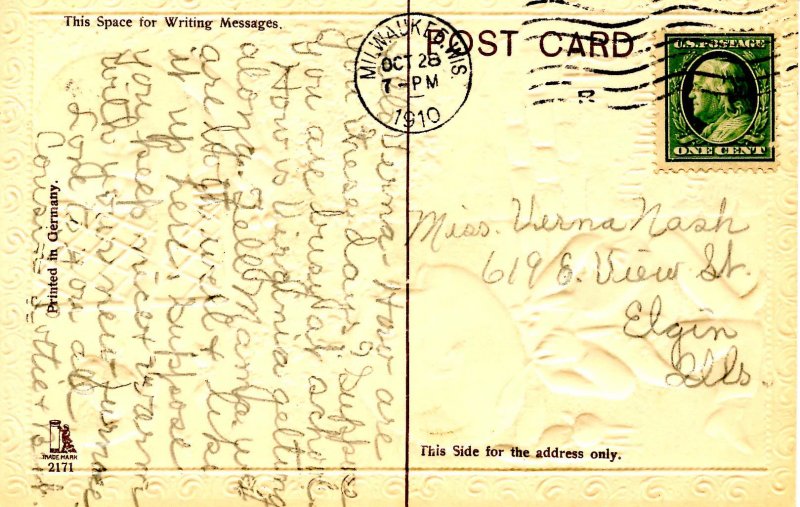 This Space for Writing Messages.
POST CARD
MILWAUKEE, WIS.
OCT 28
7-PM
1910
U.S. POSTAGE
ONE CENT
Hello Verna - How are
you these days? Suppose
you are busy at school.
How's Virginia getting
along. Tell Mama we
are both well &
it up here. Suppose
you keep nice & warm
with your new furnace
Love to you all
Cousins Lottie &
Miss. Verna Nash
619 E. View St.
Elgin
Ills.
Printed in Germany.
TRADE MARK
2171
This Side for the address only.